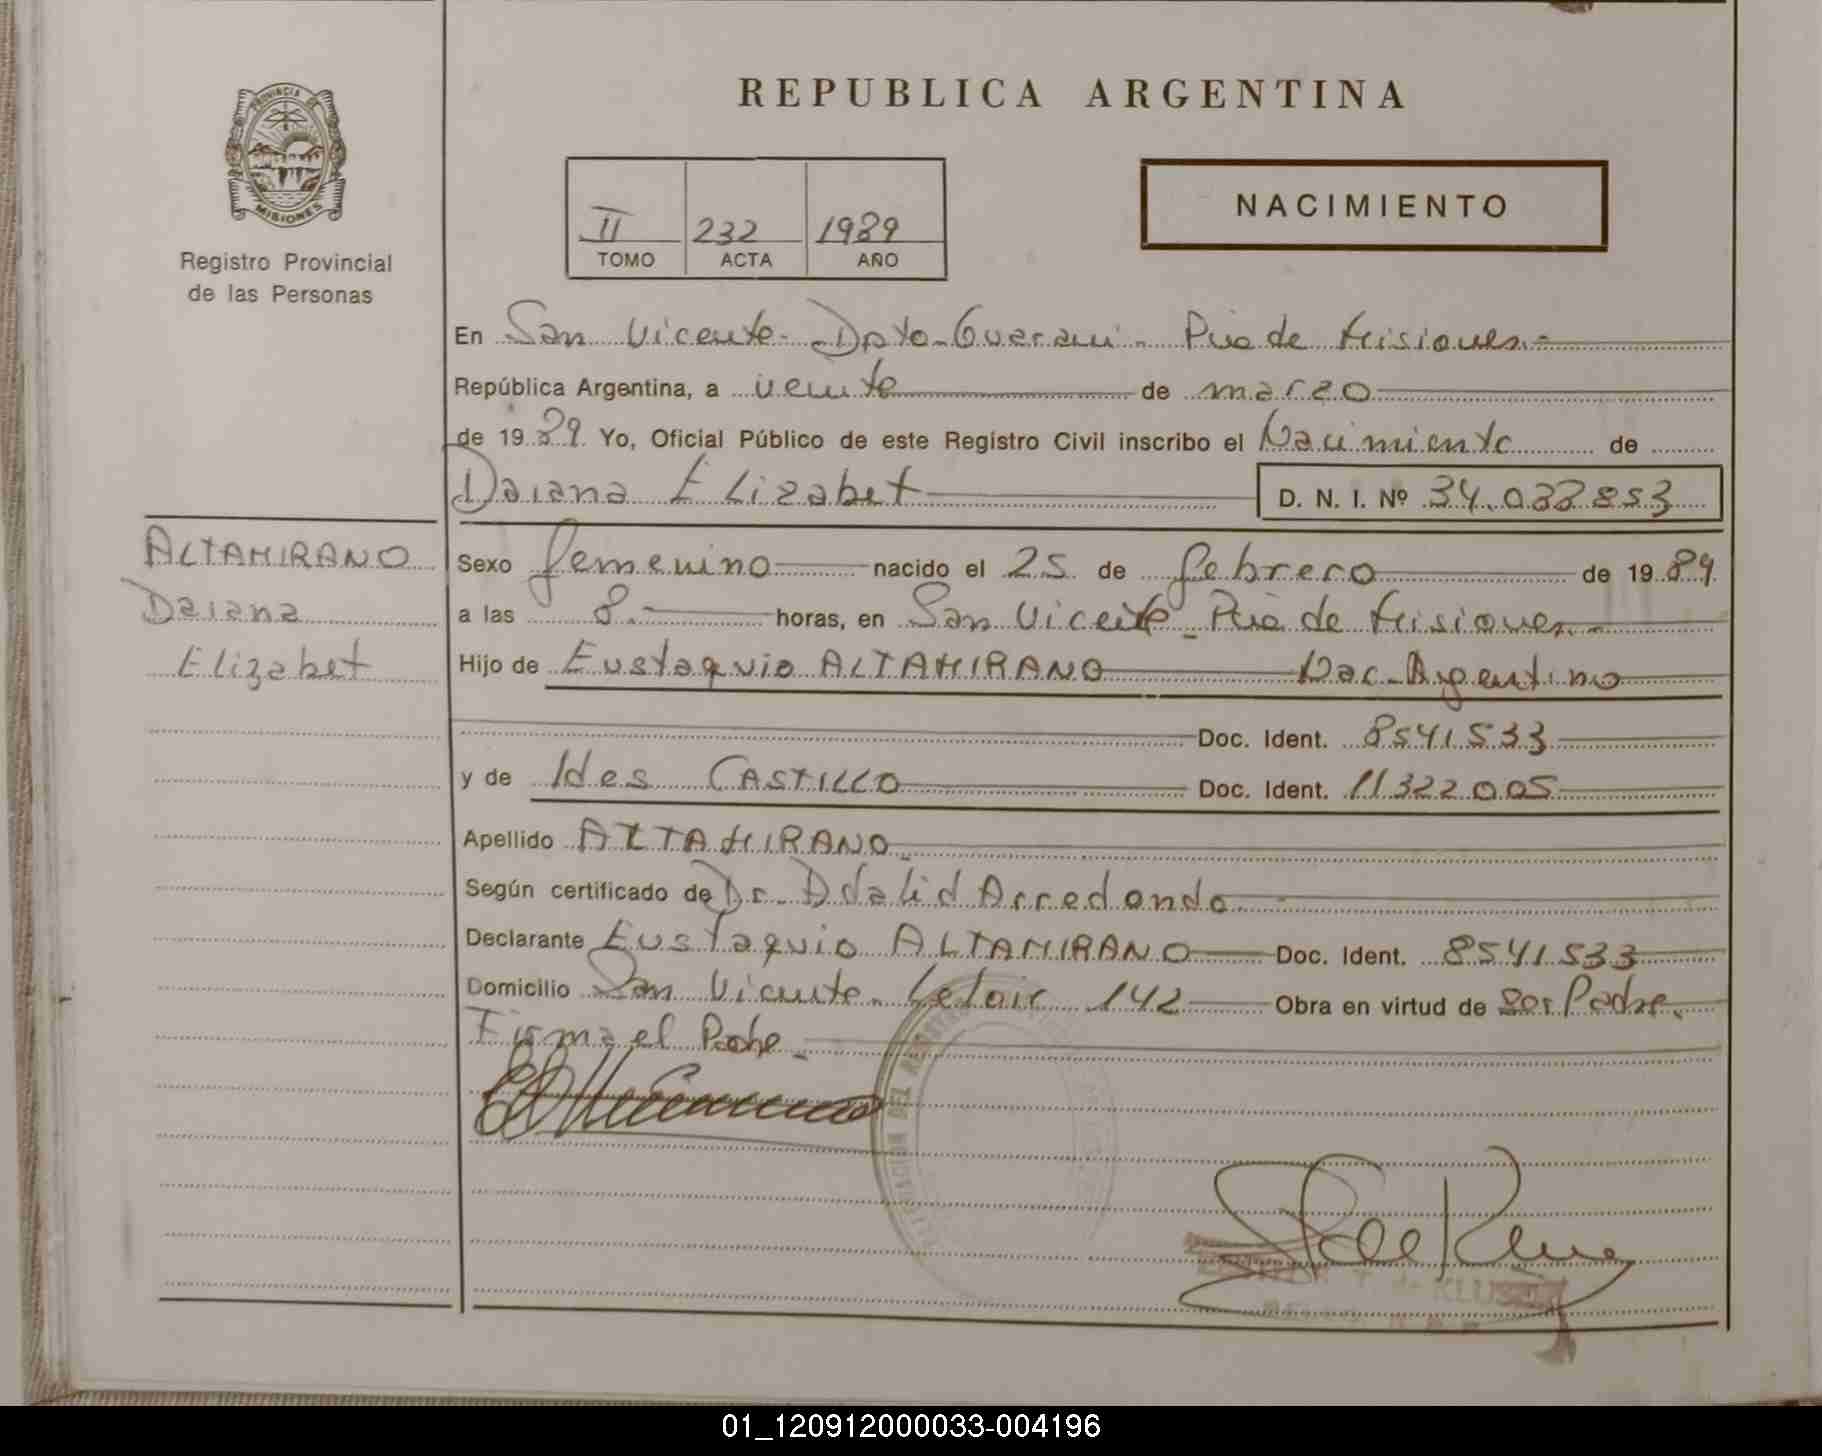 PROVINCIA DE
MISIONES
Registro Provincial
de las Personas
REPUBLICA ARGENTINA
II 232 1989
TOMO ACTA AÑO
NACIMIENTO
En San Vicente - Dpto - Guarani - Pcia de Misiones.-
República Argentina, a veinte de marzo
de 1989. Yo, Oficial Público de este Registro Civil inscribo el Nacimiento de
Daiana Elizabet D. N. I. Nº 34.033853
ALTAMIRANO
Daiana
Elizabet
Sexo femenino nacido el 25 de febrero de 1989.
a las 8.- horas, en San Vicente - Pcia de Misiones.-
Hijo de Eustaquio ALTAMIRANO Nac. Argentino
Doc. Ident. 8541533
y de Ides CASTILLO Doc. Ident. 11322005
Apellido ALTAMIRANO.
Según certificado de Dr. Adalid Arredondo
Declarante Eustaquio ALTAMIRANO Doc. Ident. 8541533
Domicilio San Vicente - Leloir 142 Obra en virtud de ser Padre.
Firma el Padre.
DEL
de KLUSE
01_120912000033-004196